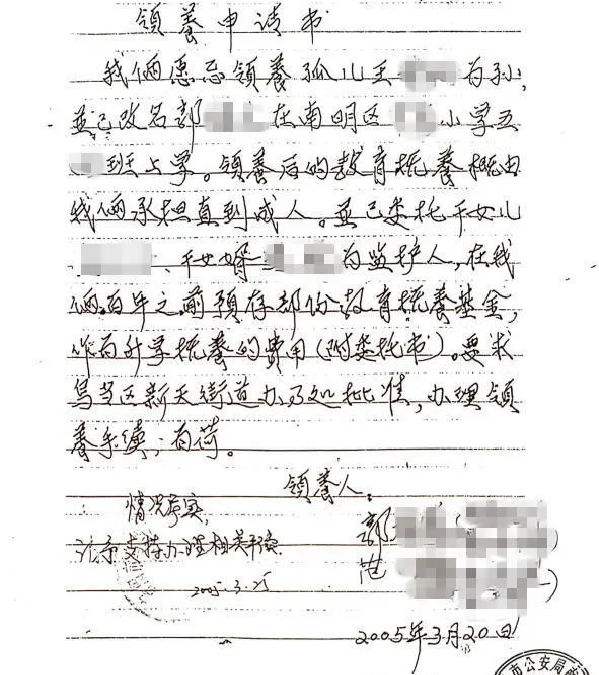 领养申请书
我俩愿意领养孤儿王 为孙,
並已改名郭 在南明区 小学五
班上学。领养后的教育抚养概由
我俩承担直到成人。並已委托干女儿
、干女婿 为监护人,在我
俩百年之前预存部份教育抚养基金,
作为升学抚养的费用(附委托书)。要求
乌当区新天街道办事处批准,办理领
养手续,为荷。
领养人:
情况属实,
请予支持办理相关手续
郭
范
2005.3.25
2005年3月20日
市公安局